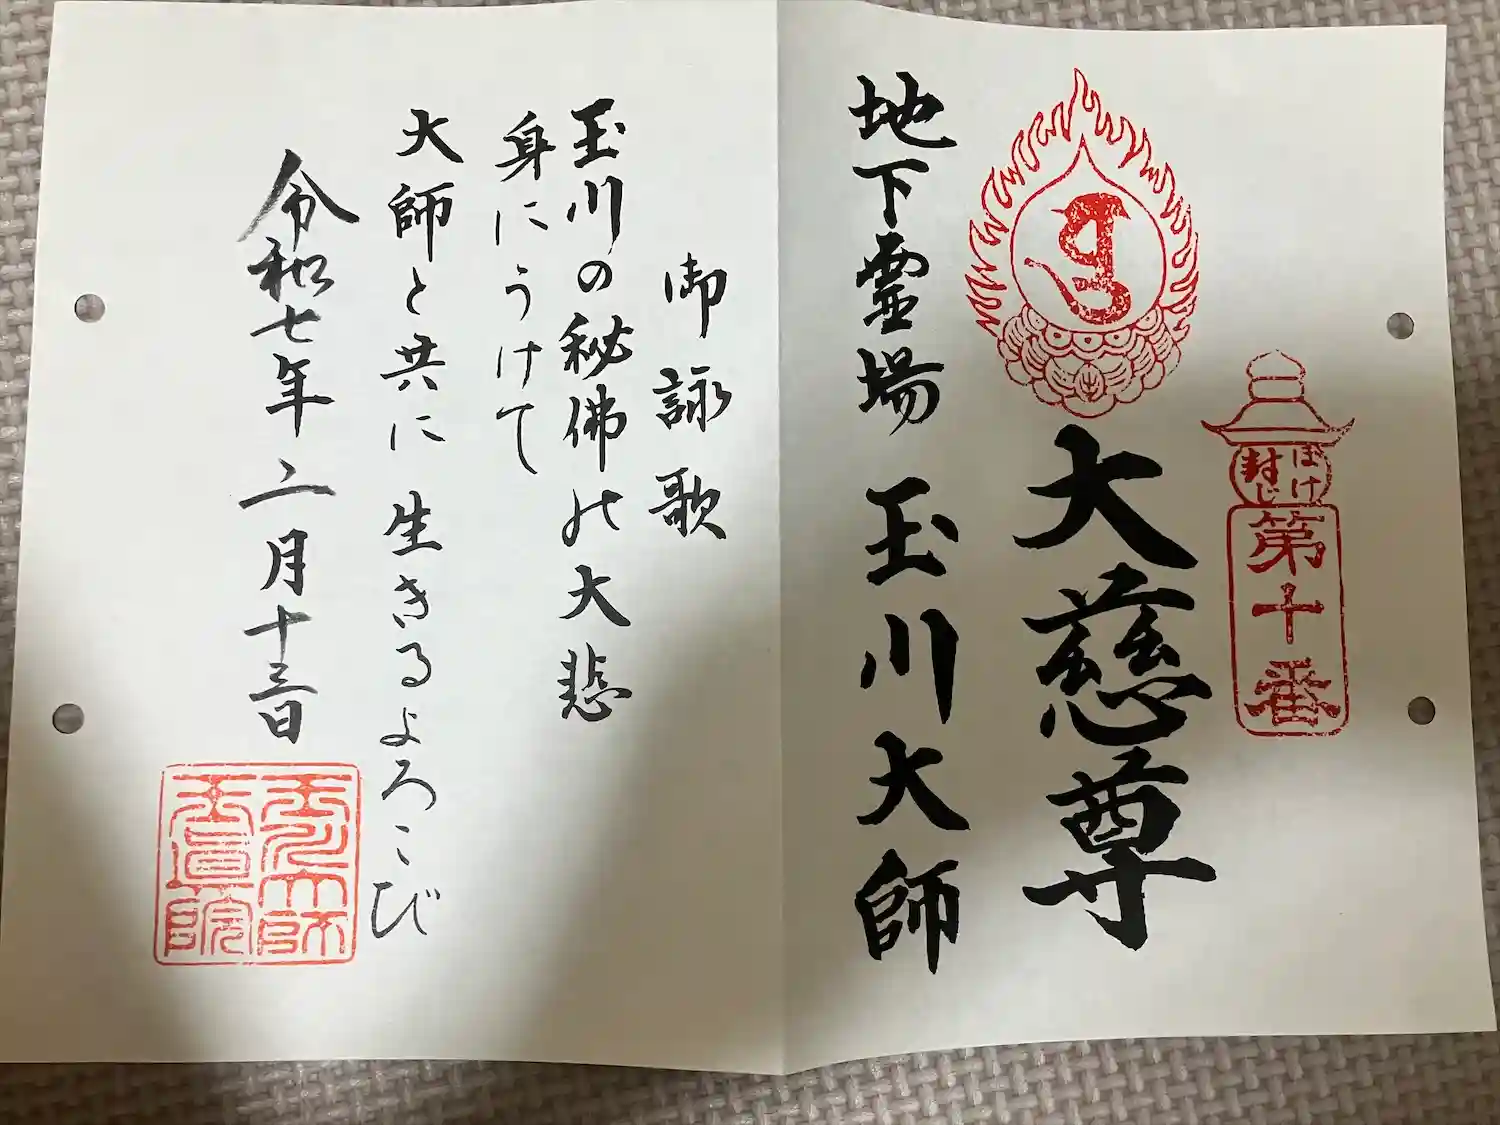 ぼけ封じ
第十番
大慈尊
地下霊場 玉川大師
御詠歌
玉川の秘佛の大悲
身にうけて
大師と共に 生きるよろこび
令和七年二月十三日
玉川大師
玉眞院